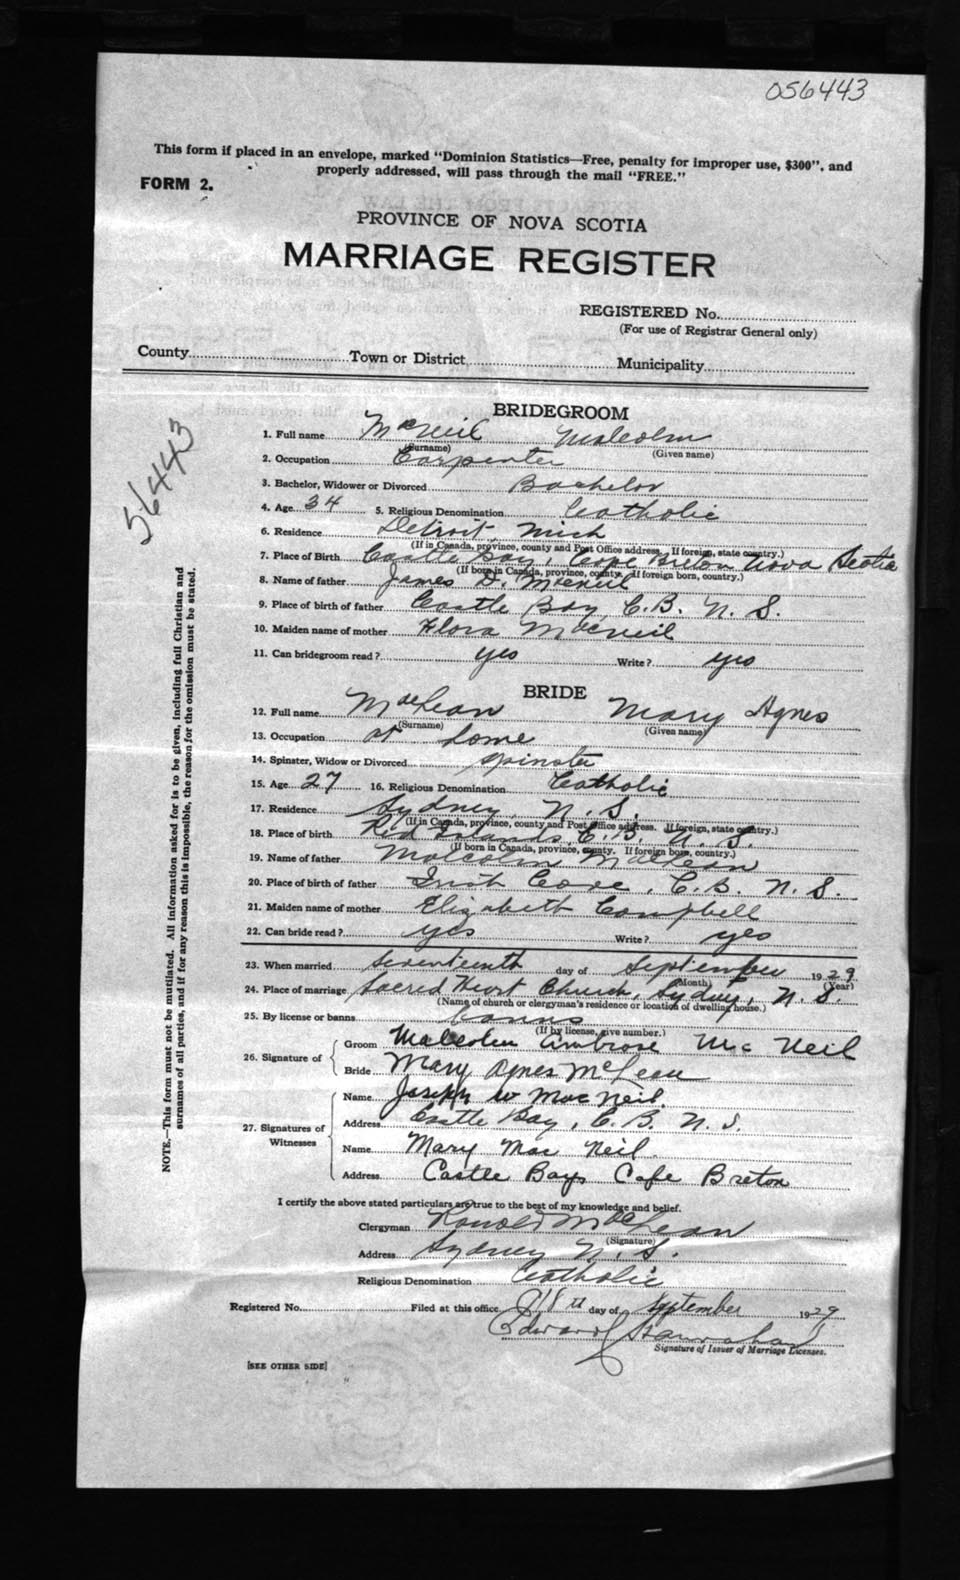 056443
This form if placed in an envelope, marked "Dominion Statistics—Free, penalty for improper use, $300", and
properly addressed, will pass through the mail "FREE."
FORM 2.
PROVINCE OF NOVA SCOTIA
MARRIAGE REGISTER
REGISTERED No.
(For use of Registrar General only)
County Town or District Municipality
56443
NOTE.—This form must not be mutilated. All information asked for is to be given, including full Christian and
surnames of all parties, and if for any reason this is impossible, the reason for the omission must be stated.
BRIDEGROOM
1. Full name MacNeil Malcolm
(Surname) (Given name)
2. Occupation Carpenter
3. Bachelor, Widower or Divorced Bachelor
4. Age 34 5. Religious Denomination Catholic
6. Residence Detroit, Mich
(If in Canada, province, county and Post Office address. If foreign, state country.)
7. Place of Birth Castle Bay, Cape Breton Nova Scotia
(If born in Canada, province, county. If foreign born, country.)
8. Name of father James D. MacNeil
9. Place of birth of father Castle Bay C.B. N. S.
10. Maiden name of mother Flora MacNeil
11. Can bridegroom read? yes Write? yes
BRIDE
12. Full name MacLean Mary Agnes
(Surname) (Given name)
13. Occupation at home
14. Spinster, Widow or Divorced Spinster
15. Age 27 16. Religious Denomination Catholic
17. Residence Sydney, N. S.
(If in Canada, province, county and Post Office address. If foreign, state country.)
18. Place of birth Red Islands, C.B. N. S.
(If born in Canada, province, county. If foreign born, country.)
19. Name of father Malcolm MacLean
20. Place of birth of father Irish Cove, C.B. N. S.
21. Maiden name of mother Elizabeth Campbell
22. Can bride read? yes Write? yes
23. When married Seventeenth day of September 1929
(Month) (Year)
24. Place of marriage Sacred Heart Church, Sydney, N. S.
(Name of church or clergyman's residence or location of dwelling house.)
25. By license or banns banns
(If by license, give number.)
26. Signature of Groom Malcolm Ambrose Mc Neil
Bride Mary Agnes McLean
27. Signatures of Witnesses Name Joseph W MacNeil.
Address Castle Bay, C.B. N.S.
Name Mary Mac Neil.
Address Castle Bay Cape Breton
I certify the above stated particulars are true to the best of my knowledge and belief.
Clergyman Ronald MacLean
(Signature)
Address Sydney N. S.
Religious Denomination Catholic
Registered No. Filed at this office day of September 1929
Edward Hanrahan
Signature of Issuer of Marriage Licenses.
[SEE OTHER SIDE]